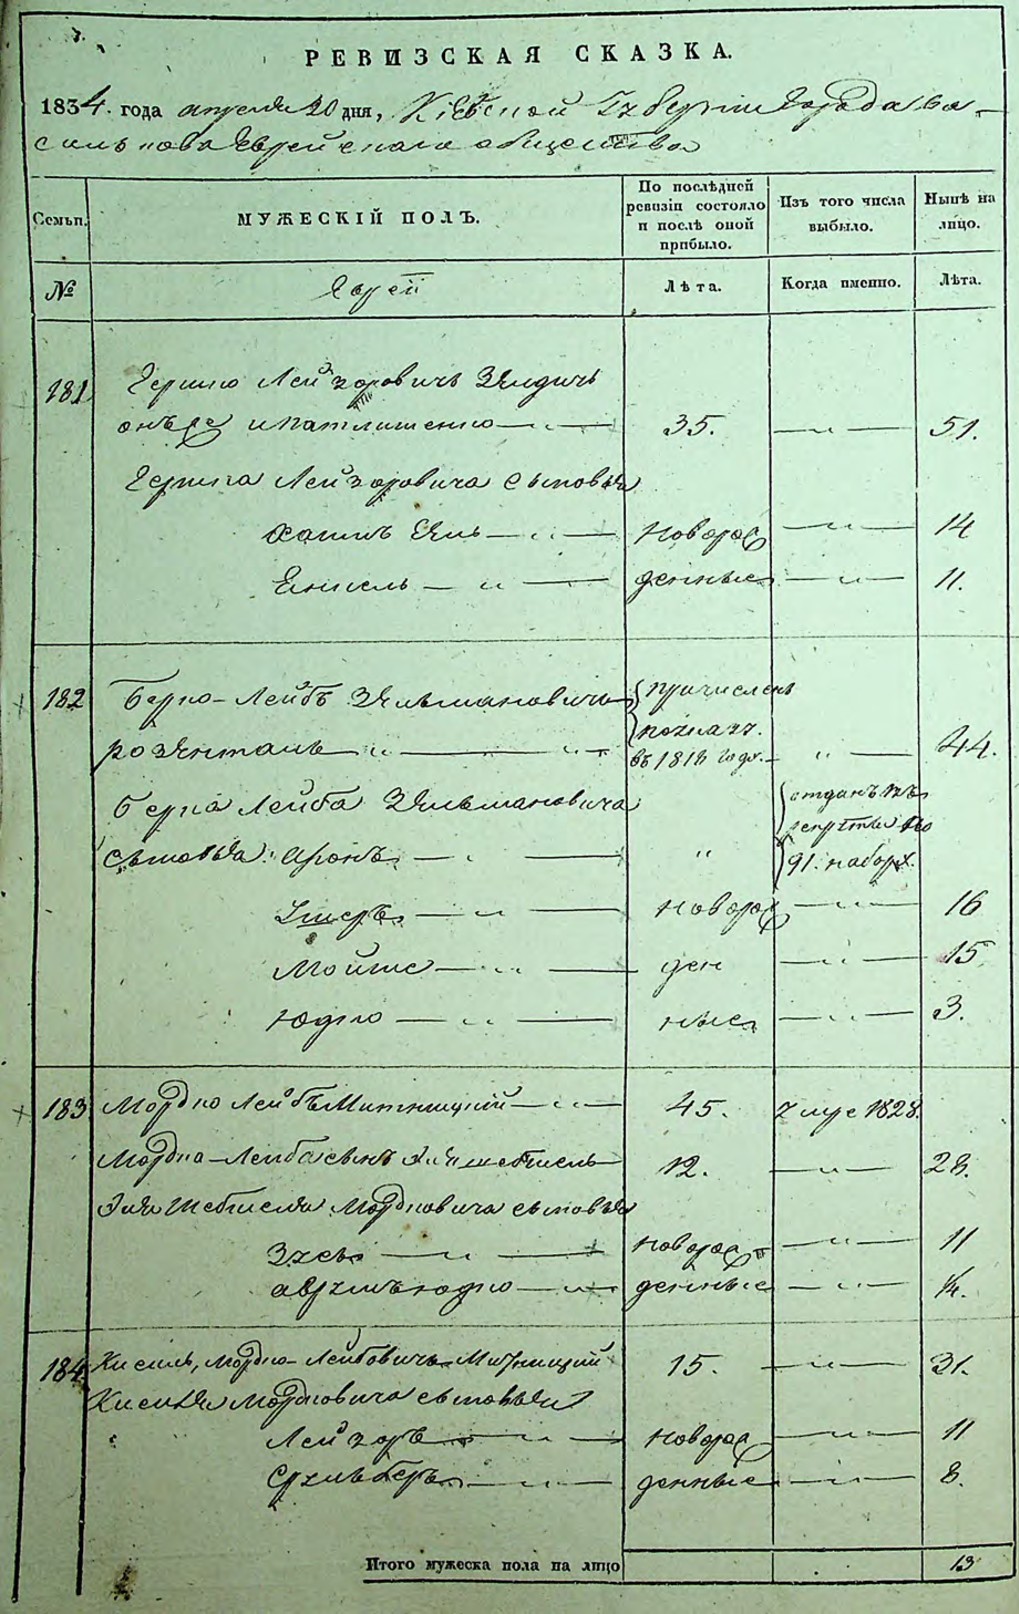 РЕВИЗСКАЯ СКАЗКА.
1834. года апреля 20 дня, Кіевской Губерніи города Ва-
силькова Еврейскаго общества
Семьи.
МУЖЕСКІЙ ПОЛЪ.
По послѣдней ревизіи состояло и послѣ оной прибыло.
Изъ того числа выбыло.
Нынѣ на лицо.
№
Евреи
Лѣта.
Когда именно.
Лѣта.
181 Гершко Лейзоровичъ
онъ же 35. 51.
Гершка Лейзоровича сыновья
новорож 14
денные 11.
182 Берко-Лейбъ Зельмановичъ причисленъ
по указ.
въ 1818 году. 44.
Берка Лейба Зельмановича отданъ въ
рекруты по
сыновья: Аронъ " 91. набору.
новорож 16
Мойше ден 15
Юдко ные 3.
183 Мордко Лейбъ Митницкій 45. умре 1828.
Мордка-Лейба сынъ 12. 28.
Мордковича сыновья
новорож 11
Аврумъ Юдко денные
184 Кисиль, Мордко-Лейбовичъ Митницкий 15. 31.
Мордковича сыновья
Лейзоръ новорож 11
Срульберъ денные 8.
Итого мужеска пола на лицо 13